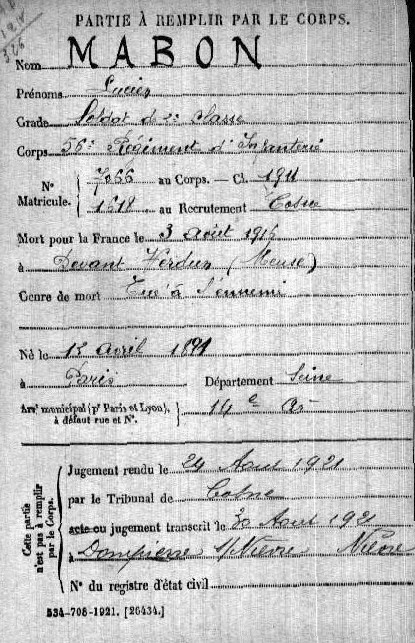 PARTIE À REMPLIR PAR LE CORPS.
Nom MABON
Prénoms Lucien
Grade Soldat de 2e classe
Corps 56e Régiment d'Infanterie
N° Matricule. { 7066 au Corps. — Cl. 1911
1618 au Recrutement Cosne
Mort pour la France le 3 Août 1916
à Devant Verdun (Meuse)
Genre de mort Tué à l'ennemi
Né le 15 avril 1891
à Paris Département Seine
Arrt municipal (pr Paris et Lyon), à défaut rue et N°. } 14e Ar
Cette partie n'est pas à remplir par le Corps.
Jugement rendu le 24 Aout 1921
par le Tribunal de Cosne
acte ou jugement transcrit le 30 Aout 1921
à Dompierre s/Nièvre Nièvre
N° du registre d'état civil
534-708-1921. [26434.]